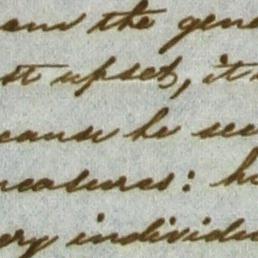 and the gene
st upset, it
ecause he see
easures: h
ery individu